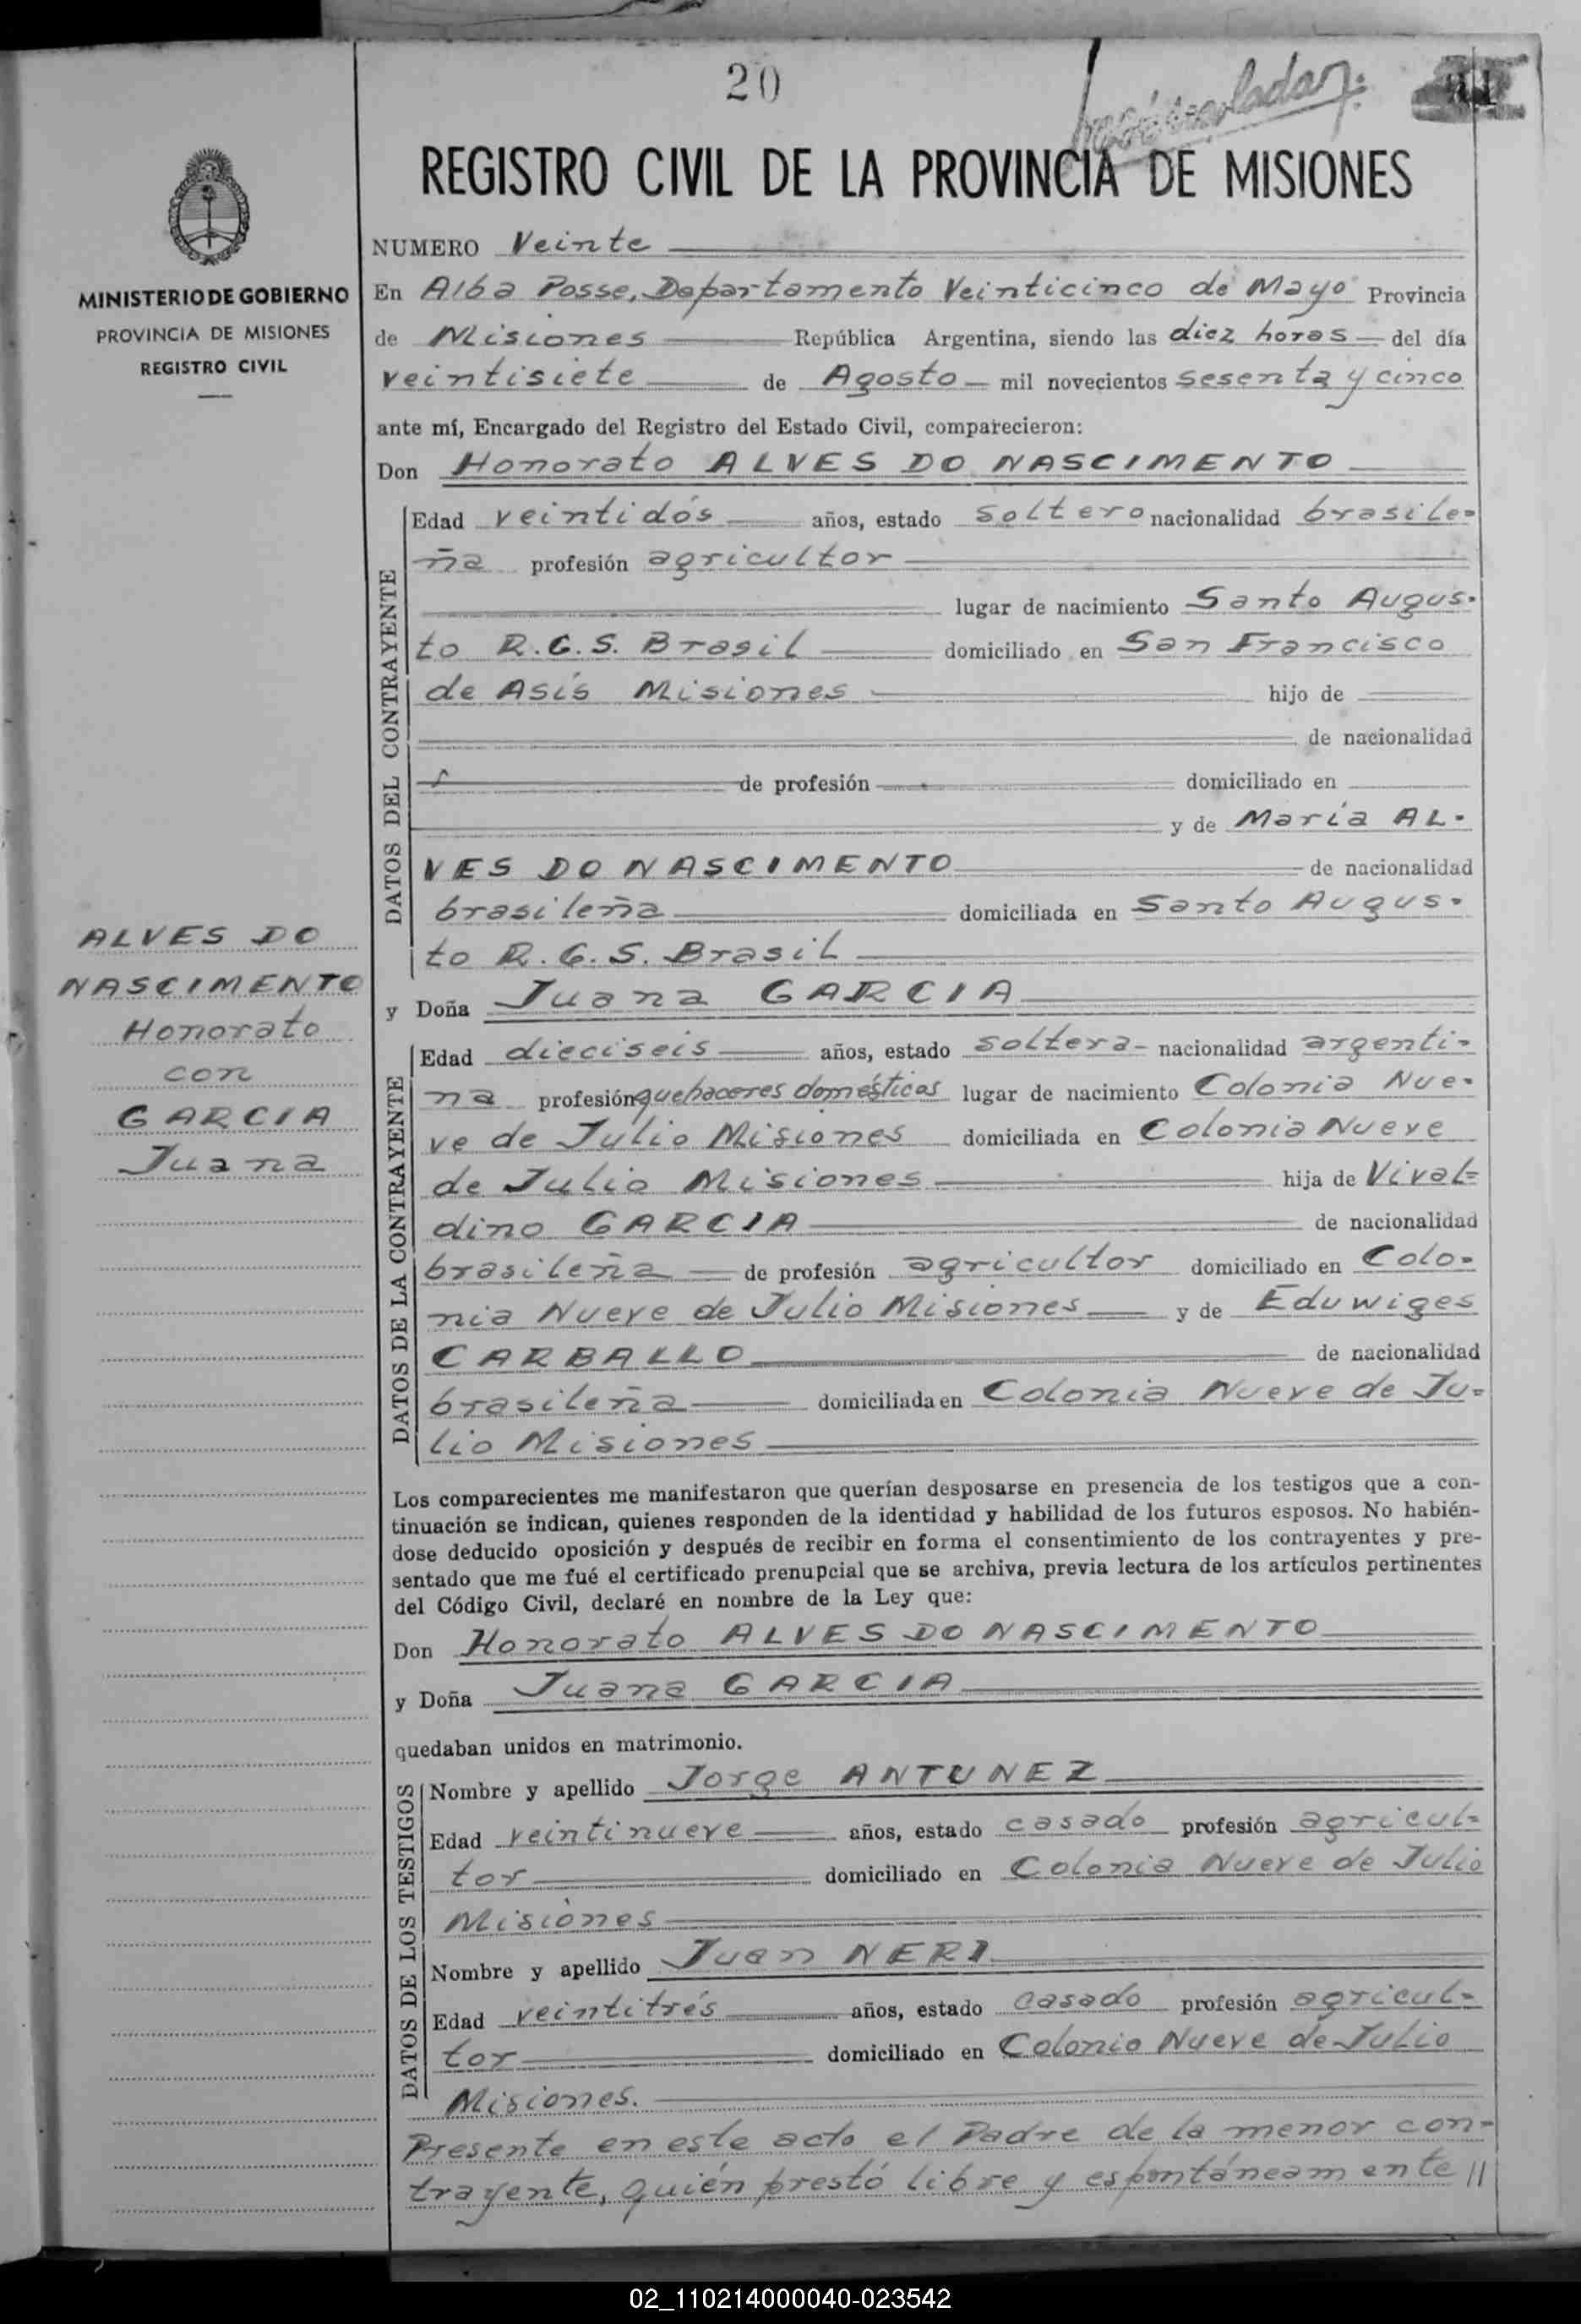 20
REGISTRO CIVIL DE LA PROVINCIA DE MISIONES
MINISTERIO DE GOBIERNO
PROVINCIA DE MISIONES
REGISTRO CIVIL
ALVES DO
NASCIMENTO
Honorato
con
GARCIA
Juana
NUMERO Veinte
En Alba Posse, Departamento Veinticinco de Mayo Provincia
de Misiones República Argentina, siendo las diez horas del día
veintisiete de Agosto mil novecientos sesenta y cinco
ante mí, Encargado del Registro del Estado Civil, comparecieron:
Don Honorato ALVES DO NASCIMENTO
DATOS DEL CONTRAYENTE
Edad veintidós años, estado soltero nacionalidad brasile=
ña profesión agricultor
lugar de nacimiento Santo Augus-
to R.G.S. Brasil domiciliado en San Francisco
de Asís Misiones hijo de
de nacionalidad
de profesión domiciliado en
y de María AL-
VES DO NASCIMENTO de nacionalidad
brasileña domiciliada en Santo Augus-
to R.G.S. Brasil
y Doña Juana GARCIA
DATOS DE LA CONTRAYENTE
Edad dieciseis años, estado soltera nacionalidad argenti=
na profesión quehaceres domésticos lugar de nacimiento Colonia Nue-
ve de Julio Misiones domiciliada en Colonia Nueve
de Julio Misiones hija de Vival=
dino GARCIA de nacionalidad
brasileña de profesión agricultor domiciliado en Colo=
nia Nueve de Julio Misiones y de Eduwiges
CARBALLO de nacionalidad
brasileña domiciliada en Colonia Nueve de Ju=
lio Misiones
Los comparecientes me manifestaron que querían desposarse en presencia de los testigos que a con-
tinuación se indican, quienes responden de la identidad y habilidad de los futuros esposos. No habién-
dose deducido oposición y después de recibir en forma el consentimiento de los contrayentes y pre-
sentado que me fué el certificado prenupcial que se archiva, previa lectura de los artículos pertinentes
del Código Civil, declaré en nombre de la Ley que:
Don Honorato ALVES DO NASCIMENTO
y Doña Juana GARCIA
quedaban unidos en matrimonio.
DATOS DE LOS TESTIGOS
Nombre y apellido Jorge ANTUNEZ
Edad veintinueve años, estado casado profesión agricul=
tor domiciliado en Colonia Nueve de Julio
Misiones
Nombre y apellido Juan NERI
Edad veintitrés años, estado casado profesión agricul=
tor domiciliado en Colonia Nueve de Julio
Misiones.
Presente en este acto el Padre de la menor con=
trayente, quién prestó libre y espontáneamente //
02_110214000040-023542